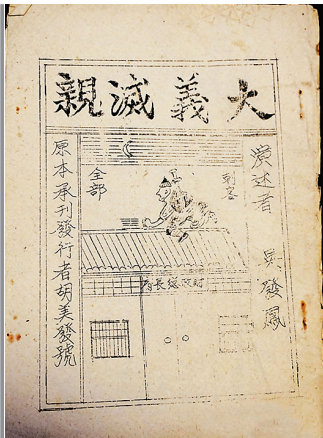 大義滅親
演述者 吳發鳳
刺客
全部
財政總長內
原本承刊發行者胡美發號